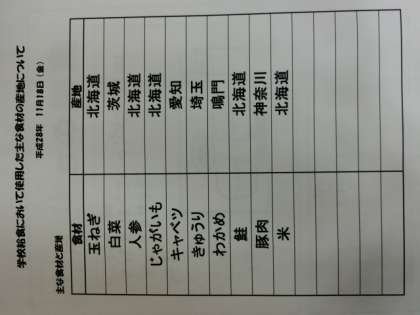 学校給食において使用した主な食材の産地について
平成28年 11月18日(金)
主な食材と産地
食材 産地
玉ねぎ 北海道
白菜 茨城
人参 北海道
じゃがいも 北海道
キャベツ 愛知
きゅうり 埼玉
わかめ 鳴門
鮭 北海道
豚肉 神奈川
米 北海道